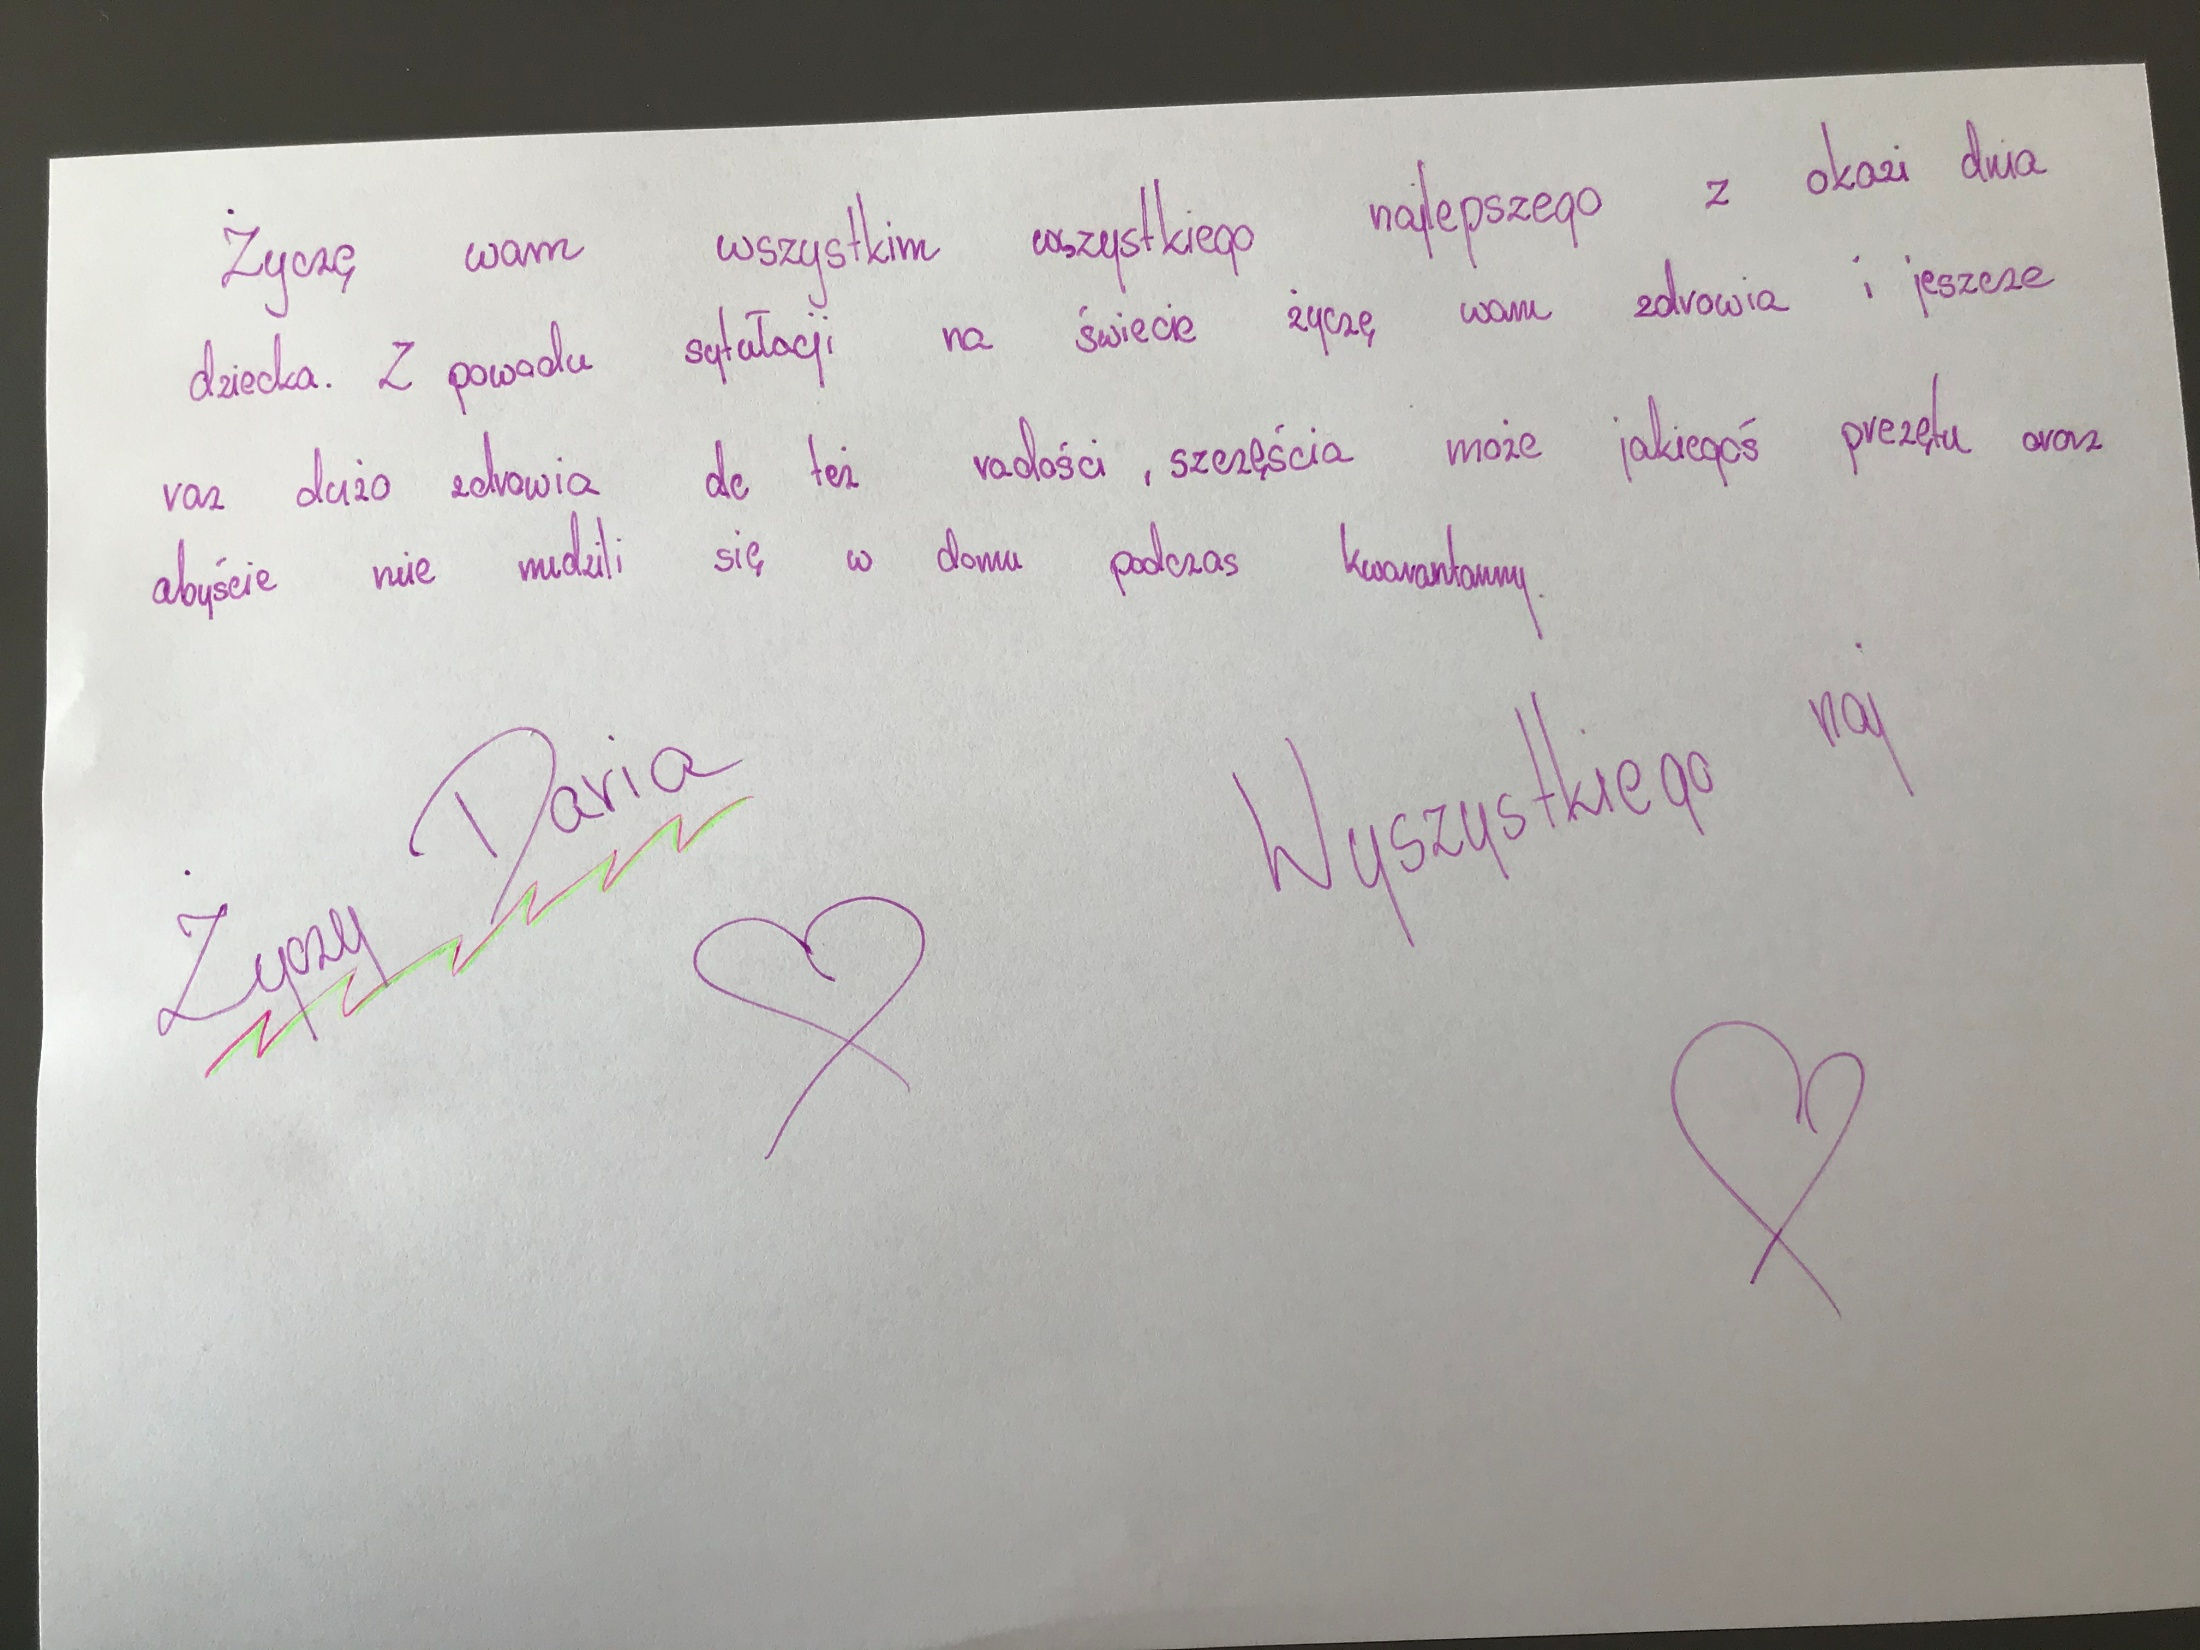 Życzę wam wszystkim wszystkiego najlepszego z okazi dnia
dziecka. Z powodu sytułacji na świecie życzę wam zdrowia i jeszcze
raz dużo zdrowia ale też radości, szczęścia może jakiegoś prezętu oraz
abyście nie nudzili się w domu podczas kwarantanny.
Życzy Daria
Wyszystkiego naj